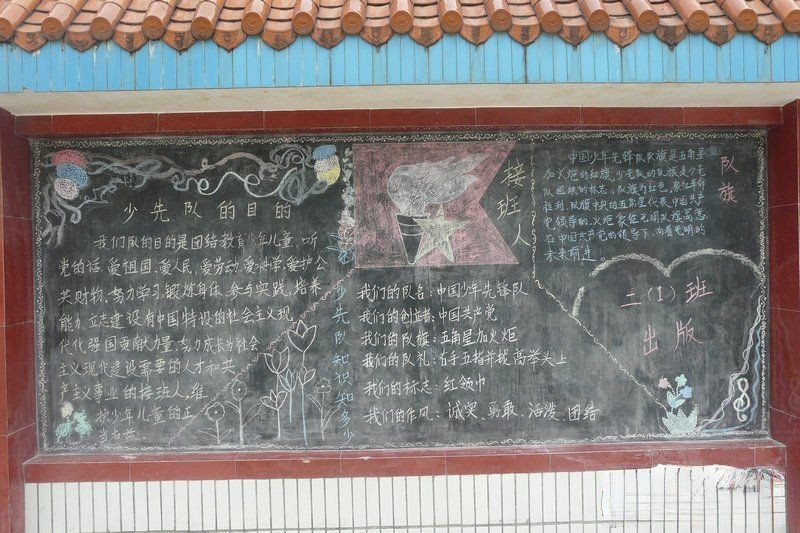 少先队的目的
我们队的目的是团结教育少年儿童，听
党的话，爱祖国、爱人民、爱劳动、爱科学、爱护公
共财物，努力学习，锻炼身体，参与实践，培养
能力，立志建设有中国特设的社会主义现
代化强国贡献力量，努力成长为社会
主义现代化建设需要的人才和共
产主义事业的接班人，维
护少年儿童的正
当和
少先队知识知多少
接班人
我们的队名：中国少年先锋队
我们的创立者：中国共产党
我们的队旗：五角星加火炬
我们的队礼：右手五指并拢高举头上
我们的标志：红领巾
我们的作风：诚实、勇敢、活泼、团结
队旗
中国少年先锋队队旗是五角星
加火炬的红旗，少先队的队旗是少先
队组织的标志，队旗为红色，象征革命
胜利，队旗中央的五角星代表中国共产
党领导的，火炬象征光明队旗高悬，
在中国共产党的领导下，向着光明的
未来前进。
二（1）班
出版